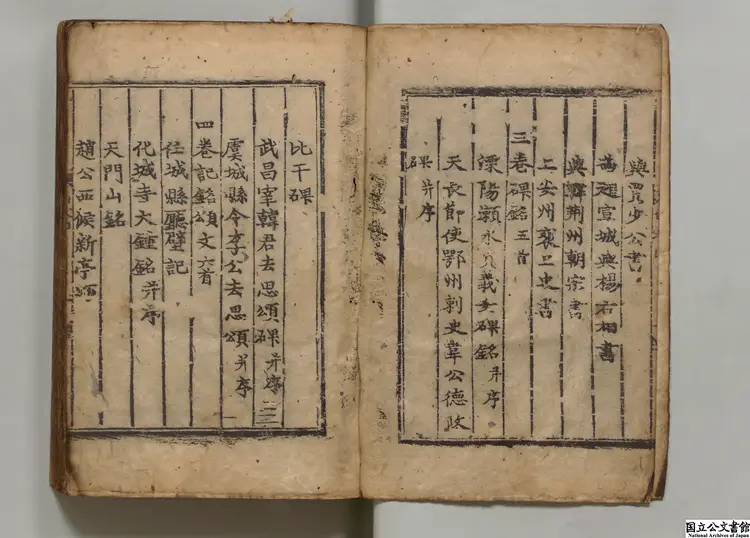 與賈少公書
爲趙宣城與楊右相書
與韓荆州朝宗書
上安州裴長史書
三卷碑銘五首
溧陽瀬水貞義女碑銘并序
天長節使鄂州刺史韋公德政
碑并序
比干碑
武昌宰韓君去思頌碑并序
虞城縣令李公去思頌并序
四卷記銘頌文六首
任城縣廳壁記
化城寺大鐘銘并序
天門山銘
趙公西候新亭頌
国立公文書館
National Archives of Japan